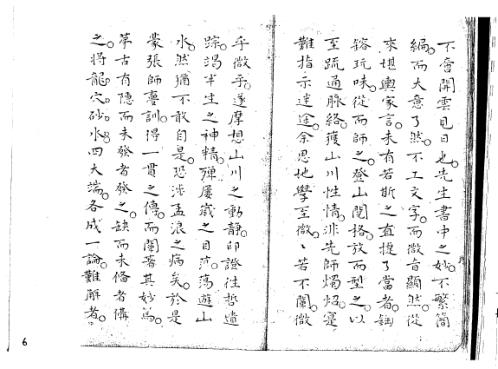 不啻開雲見日也。先生書中之妙。不繁簡
編。而大意了然。不工文字。而微旨顯然。從
來堪輿家言。未有若斯之直捷了當者。細
玩味。從而師之。登山閱格。放而型之。以
至疏通脈絡。獲山川性情。非先師燭炤。寔
難指示迷途。余思地學至微。若不闡微
乎微乎。遂厚想山川之動靜。印證往哲遺
踪。渴半生之神精。殫屢歲之目。蕩遊山
水。然猶不敢自是。恐涉孟浪之病矣。於是
蒙張師亹訓。得一貫之傳。而闡著其妙焉。
第古有隱而未發者發之。缺而未備者備
之。將龍。穴。砂。水。四大端。各成一論。難解者。
6